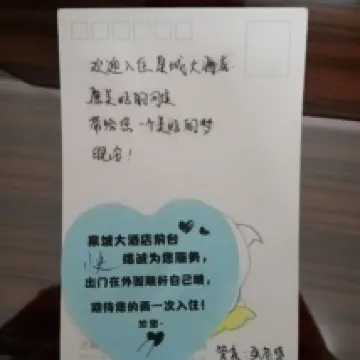 欢迎入住泉城大酒店
愿美好的回忆
带给您一个美好的梦
晚安!
泉城大酒店前台
竭诚为您服务,
出门在外照顾好自己哦,
期待您的再一次入住!
加油~